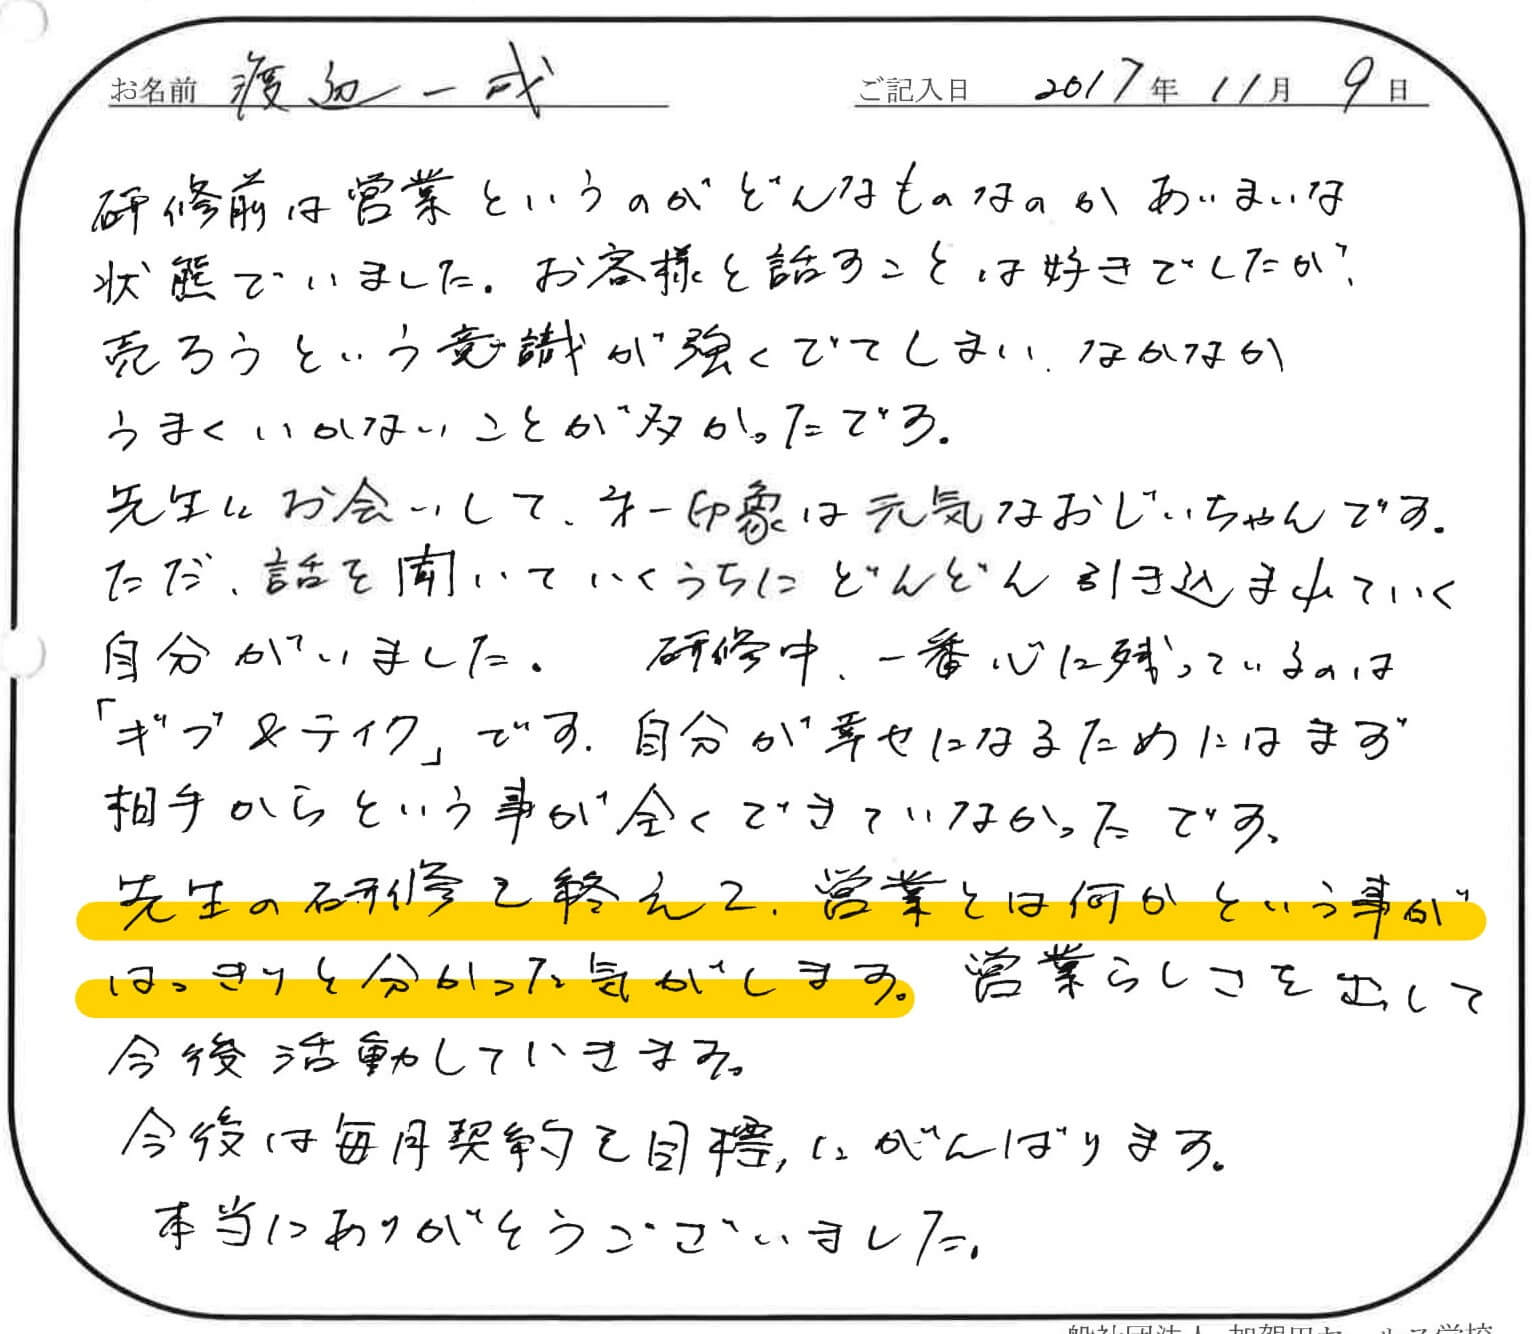 お名前 渡辺一成 ご記入日 2017年11月9日
研修前は営業というのがどんなものなのかあいまいな
状態でいました。お客様と話すことは好きでしたが、
売ろうという意識が強くでてしまい、なかなか
うまくいかないことが多かったです。
先生にお会いして、第一印象は元気なおじいちゃんです。
ただ、話を聞いていくうちにどんどん引き込まれていく
自分がいました。 研修中、一番心に残っているのは
「ギブ&テイク」です。自分が幸せになるためにはまず
相手からという事が全くできていなかったです。
先生の研修を終えて、営業とは何かという事が
はっきりと分かった気がします。営業らしさを出して
今後活動していきます。
今後は毎月契約を目標にがんばります。
本当にありがとうございました。
一般社団法人 加賀田セールス学校